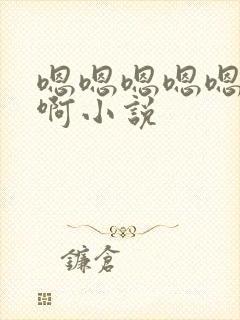 嗯嗯嗯嗯嗯
啊小説
鐮倉